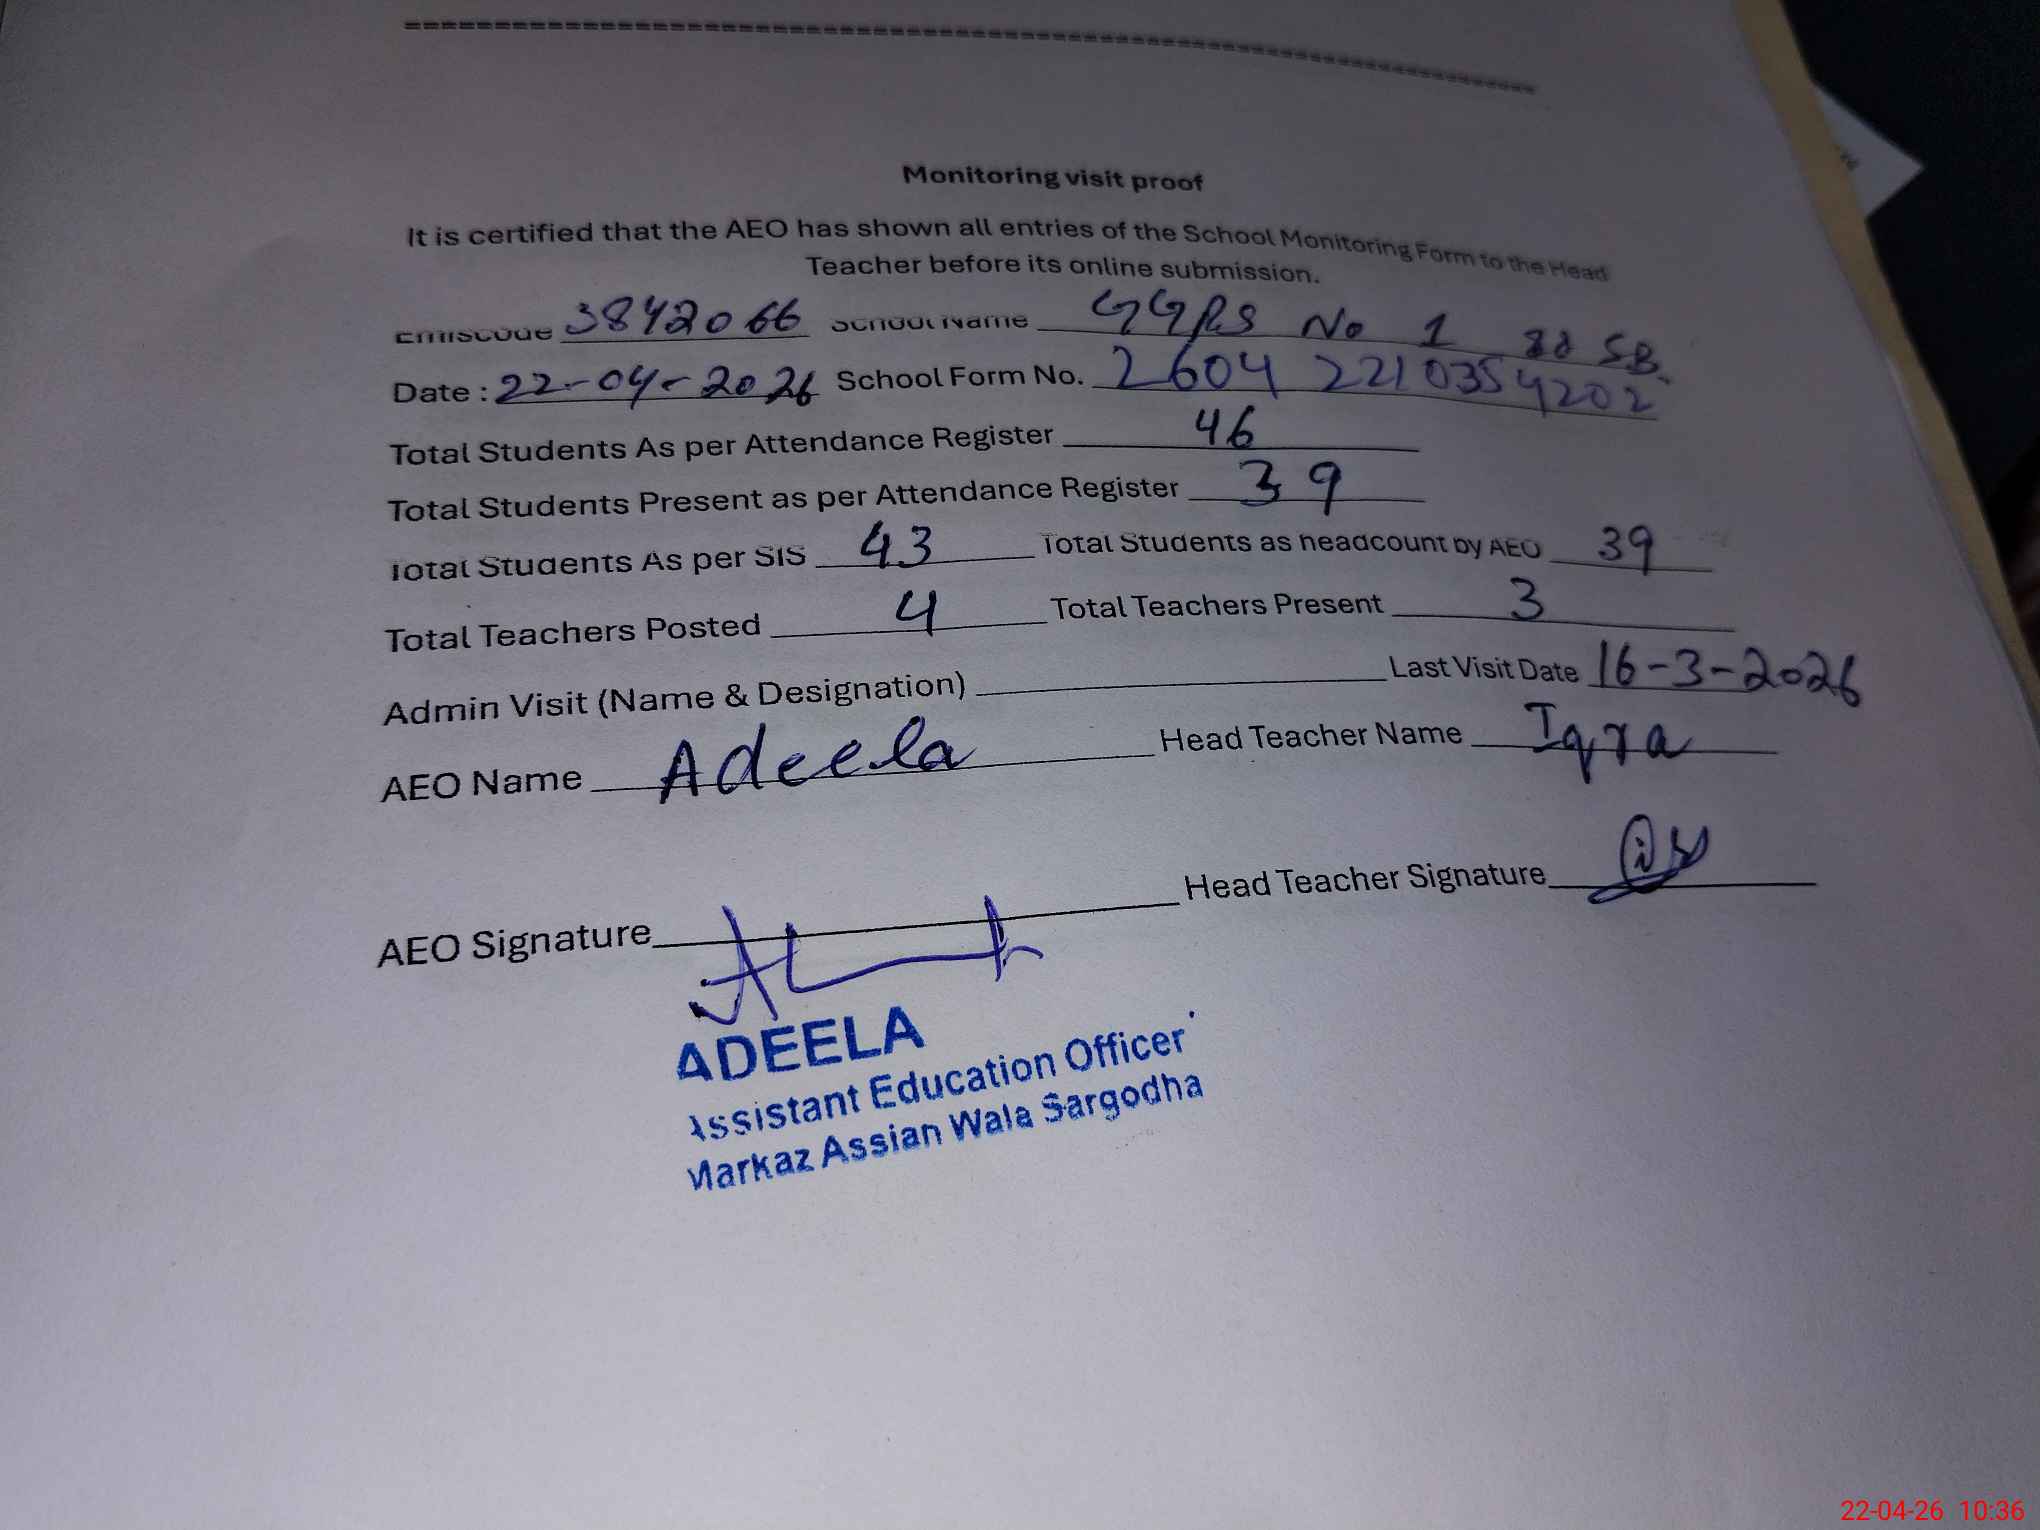 Monitoring visit proof
It is certified that the AEO has shown all entries of the School Monitoring Form to the Head
Teacher before its online submission.
Emiscode 3842066 School Name GGPS No 1 88 SB.
Date : 22-04-2026 School Form No. 2604 2210354202
Total Students As per Attendance Register 46
Total Students Present as per Attendance Register 39
Total Students As per SIS 43 Total Students as headcount by AEO 39
Total Teachers Posted 4 Total Teachers Present 3
Admin Visit (Name & Designation) Last Visit Date 16-3-2026
AEO Name Adeela Head Teacher Name Iqra
AEO Signature Head Teacher Signature
ADEELA
Assistant Education Officer
Markaz Assian Wala Sargodha
22-04-26 10:36